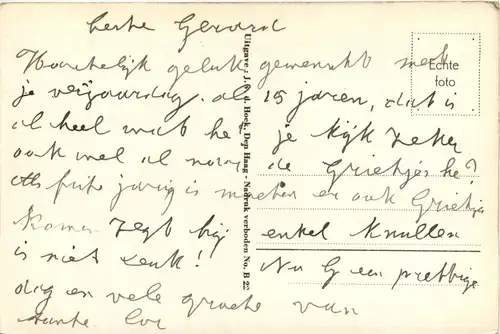 beste Gerard
Hartelijk geluk gewenscht met
je verjaardag. al 15 jaren, dat is
al heel wat he je kijk zeker
ook wel al naar de Grietjes he?
Als frits jarig is moeten er ook Grietjes
komen zegt hij enkel Knullen
is niet leuk! Nu G een prettige
dag en vele groete van
tante
Echte
foto
Uitgave: J. v. d. Hoek, Den Haag - Nadruk verboden No. B